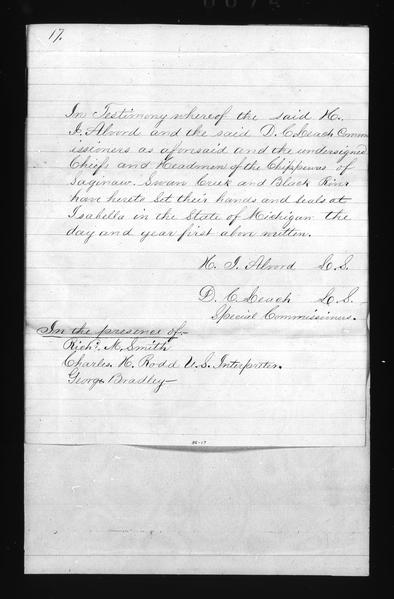 17.
In Testimony whereof the said H.
J. Alvord and the said D. C. Leach Comm
issioners as aforesaid and the undersigned
Chiefs and Headmen of the Chippewas of
Saginaw, Swan Creek and Black River
have hereto set their hands and seals at
Isabella in the State of Michigan the
day and year first above written.
H. J. Alvord L. S.
D. C. Leach L. S.
Special Commissioners.
In the presence of,
Richd. M. Smith
Charles. H. Rodd U.S. Interpreter.
George Bradley